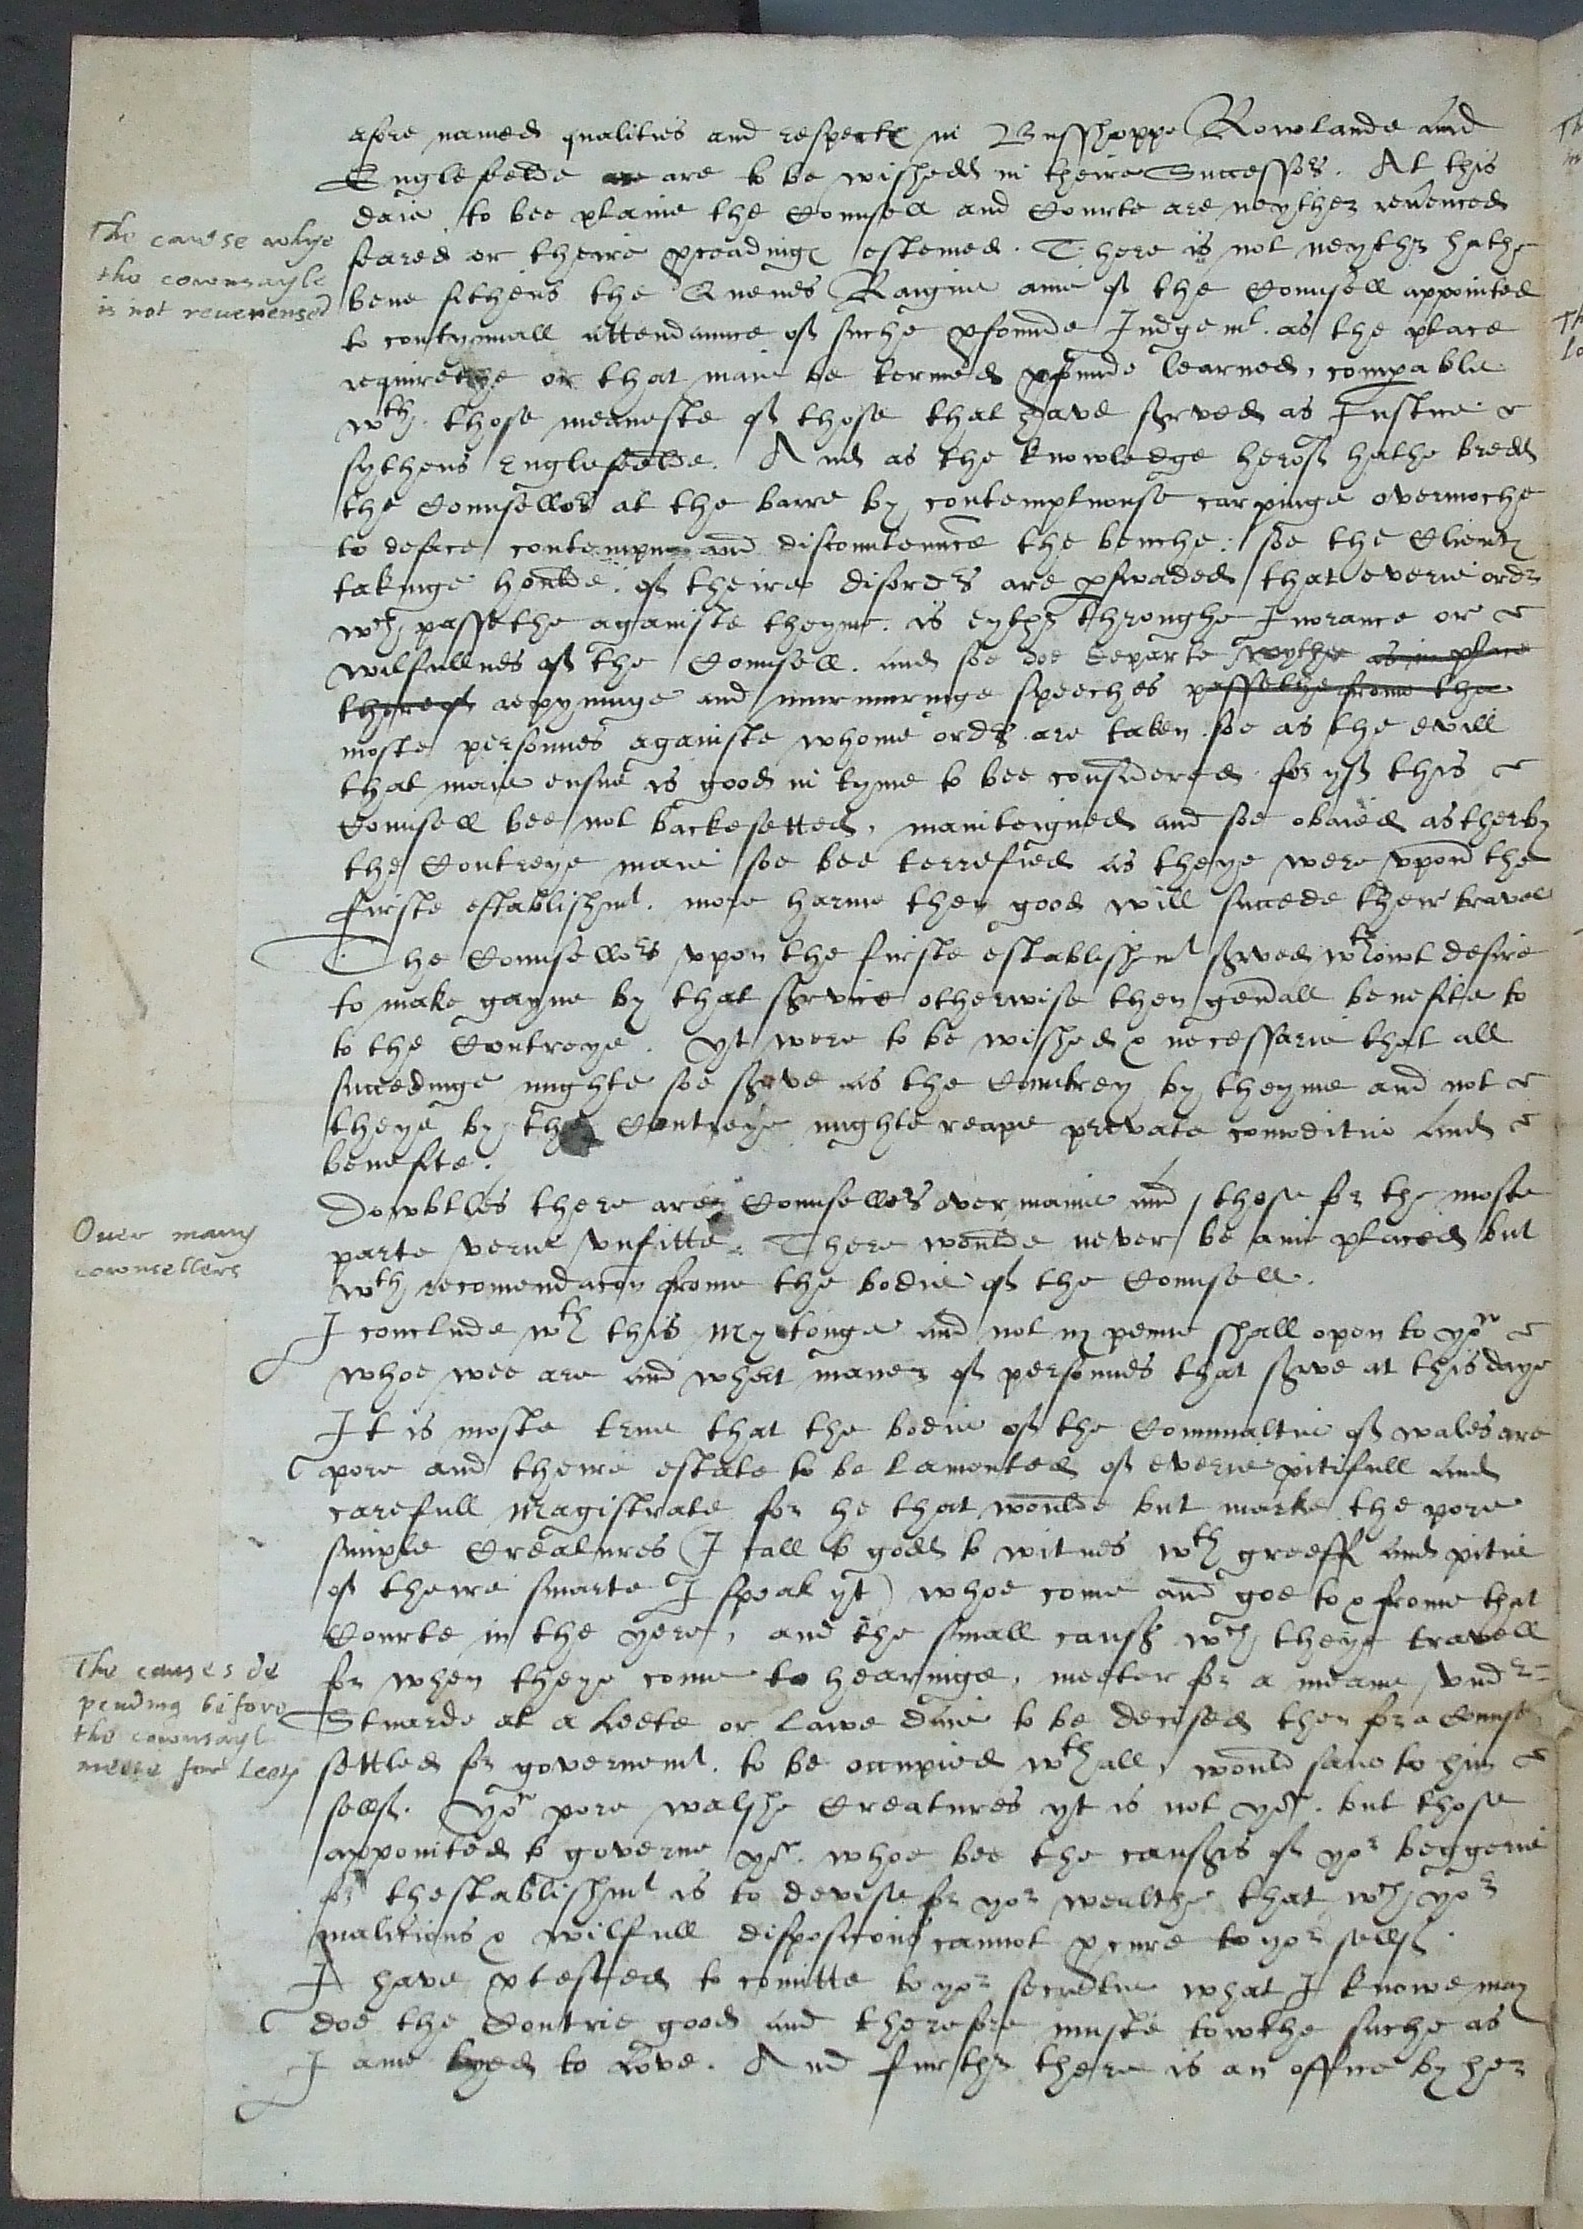 afore named qualities and respectes in Busshoppe Rowlande and
Englefeelde are to be wished in theire Successors. At this
daie to bee plaine the Counsell and Courte are neyther reuenced
feared or theire pceadinges estemed. There is not neyther hathe
The cawse whye
the cownsayle
is not reuerensed
bene sithens the Quenes Raigne anie of the Counsell appointed
to contynuall attendaunce of suche pfounde Judgemt. as the place
requirethe or that maie be termed pfounde learned, compable
wth those meaneste of those that have served as Justice
sythens Englefeelde. And as the knowledge herof hathe bredd
the Counsellors at the barre by contemptuouse carpinge overmoche
to deface contempne and discountennce the benche: soe the Clientes
takinge houlde of theire disorders are pswaded that everie order
wch passethe againste theyme is eyther throughe Inorance or
wilfullnes of the Counsell. and soe doe departe wythe as in place
thereof repyninge and murmuringe speeches passethe frome the
moste personnes againste whome orders are taken soe as the evill
that maie ensue is good in tyme to bee considered for yf this
Counsell bee not backesetted, mainteigned and soe obaied as therby
the Contreye maie soe bee terrefied as theye were vpon the
firste establishmt. more harme then good will succede their travel
The Counsellors vpon the firste establishmt served wthout desire
to make gayne by that service otherwise then genall benefite to
to the Contreye. yt were to be wished & necessarie that all
succedinge mighte soe serve as the Countrey by theyme and not
theye by the Contreye mighte reape private comoditie and
benefite.
Dowbtles there are Counsellors over manie and those for the moste
Ouer many
cownsellers
parte verie vnfitte. There woulde never be anie placed but
wth recomendacon frome the bodie of the Counsell.
I conclude wth this My tonge and not my penne shall open to yor
whoe wee are and what maner of personnes that serve at this daye
It is moste true that the bodie of the Communaltie of wales are
pore and theire estate to be lamented of everie pitifull and
carefull Magistrate for he that woulde but marke the pore
simple Creatures (I call to godd to witnes wth greeff and pitie
of theire smarte I speak yt) whoe come and goe to & frome that
Courte in the yere, and the small causes wch theye travell
The cawses de
pending before
the cownsayl
meete for Leets
for when theye come to hearinge, meeter for a meane vnder=
Stuarde at a Leete or lawe daie to be decised then for a Counse
settled for governemt. to be occupied wthall, would saie to him
sellf. yor pore walshe Creatures yt is not yor. but those
appointed to governe yor. whoe bee the causers of yor beggerie
for thestablishmt is to devise for yor wealthe that wch yor
malitious & wilfull disposicons cannot pcure to yor sellf.
I have ptested to comitte to yor secretie what I knowe may
doe the Contrie good and therefore muste towche suche as
I ame tyed to Love. And further there is an office by her